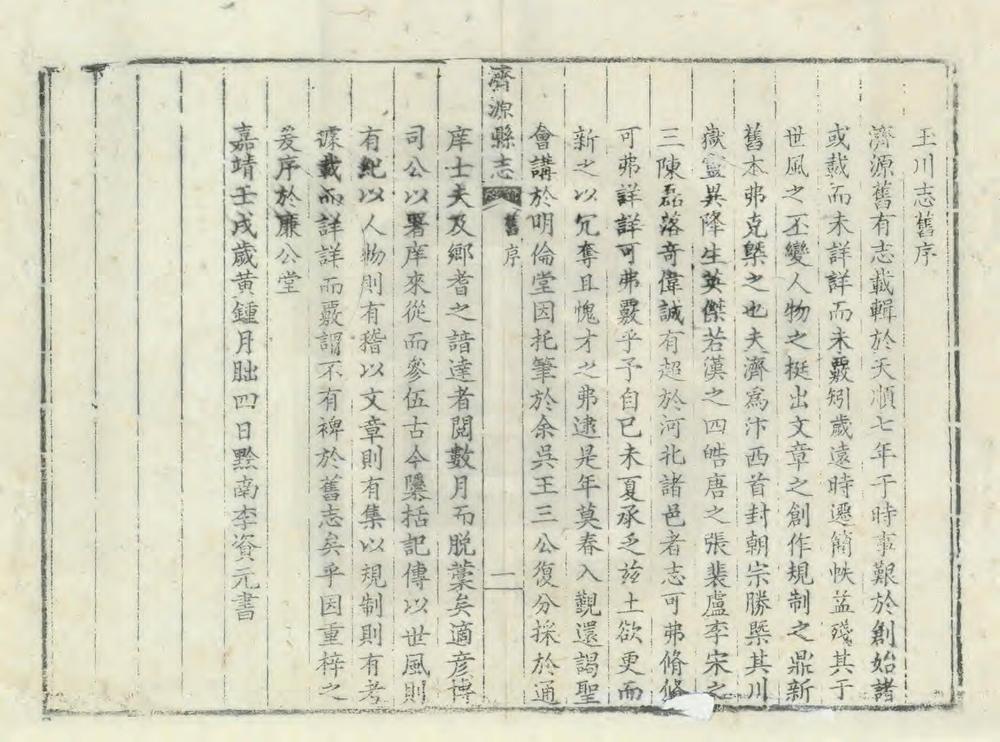 玉川志舊序
濟源舊有志載輯於天順七年于時事艱於創始諸
或載而未詳詳而未覈矧歲遠時遷簡帙益殘其于
世風之丕變人物之挺出文章之創作規制之鼎新
舊本弗克槩之也夫濟爲汴西首封朝宗勝槩其川
嶽靈異降生英傑若漢之四皓唐之張裴盧李宋之
三陳磊落奇偉誠有超於河北諸邑者志可弗脩脩
可弗詳詳可弗覈乎予自己未夏承乏兹土欲更而
新之以冗奪且愧才之弗逮是年莫春入覲還謁聖
會講於明倫堂因托筆於余吳王三公復分採於通
濟源縣志
舊序
二
庠士夫及鄉耆之諳達者閱數月而脱藁矣適彦博
司公以署庠來從而參伍古今檃括記傳以世風則
有紀以人物則有稽以文章則有集以規制則有考
據載而詳詳而覈謂不有裨於舊志矣乎因重梓之
爰序於廉公堂
嘉靖壬戌歲黃鍾月朏四日黔南李資元書